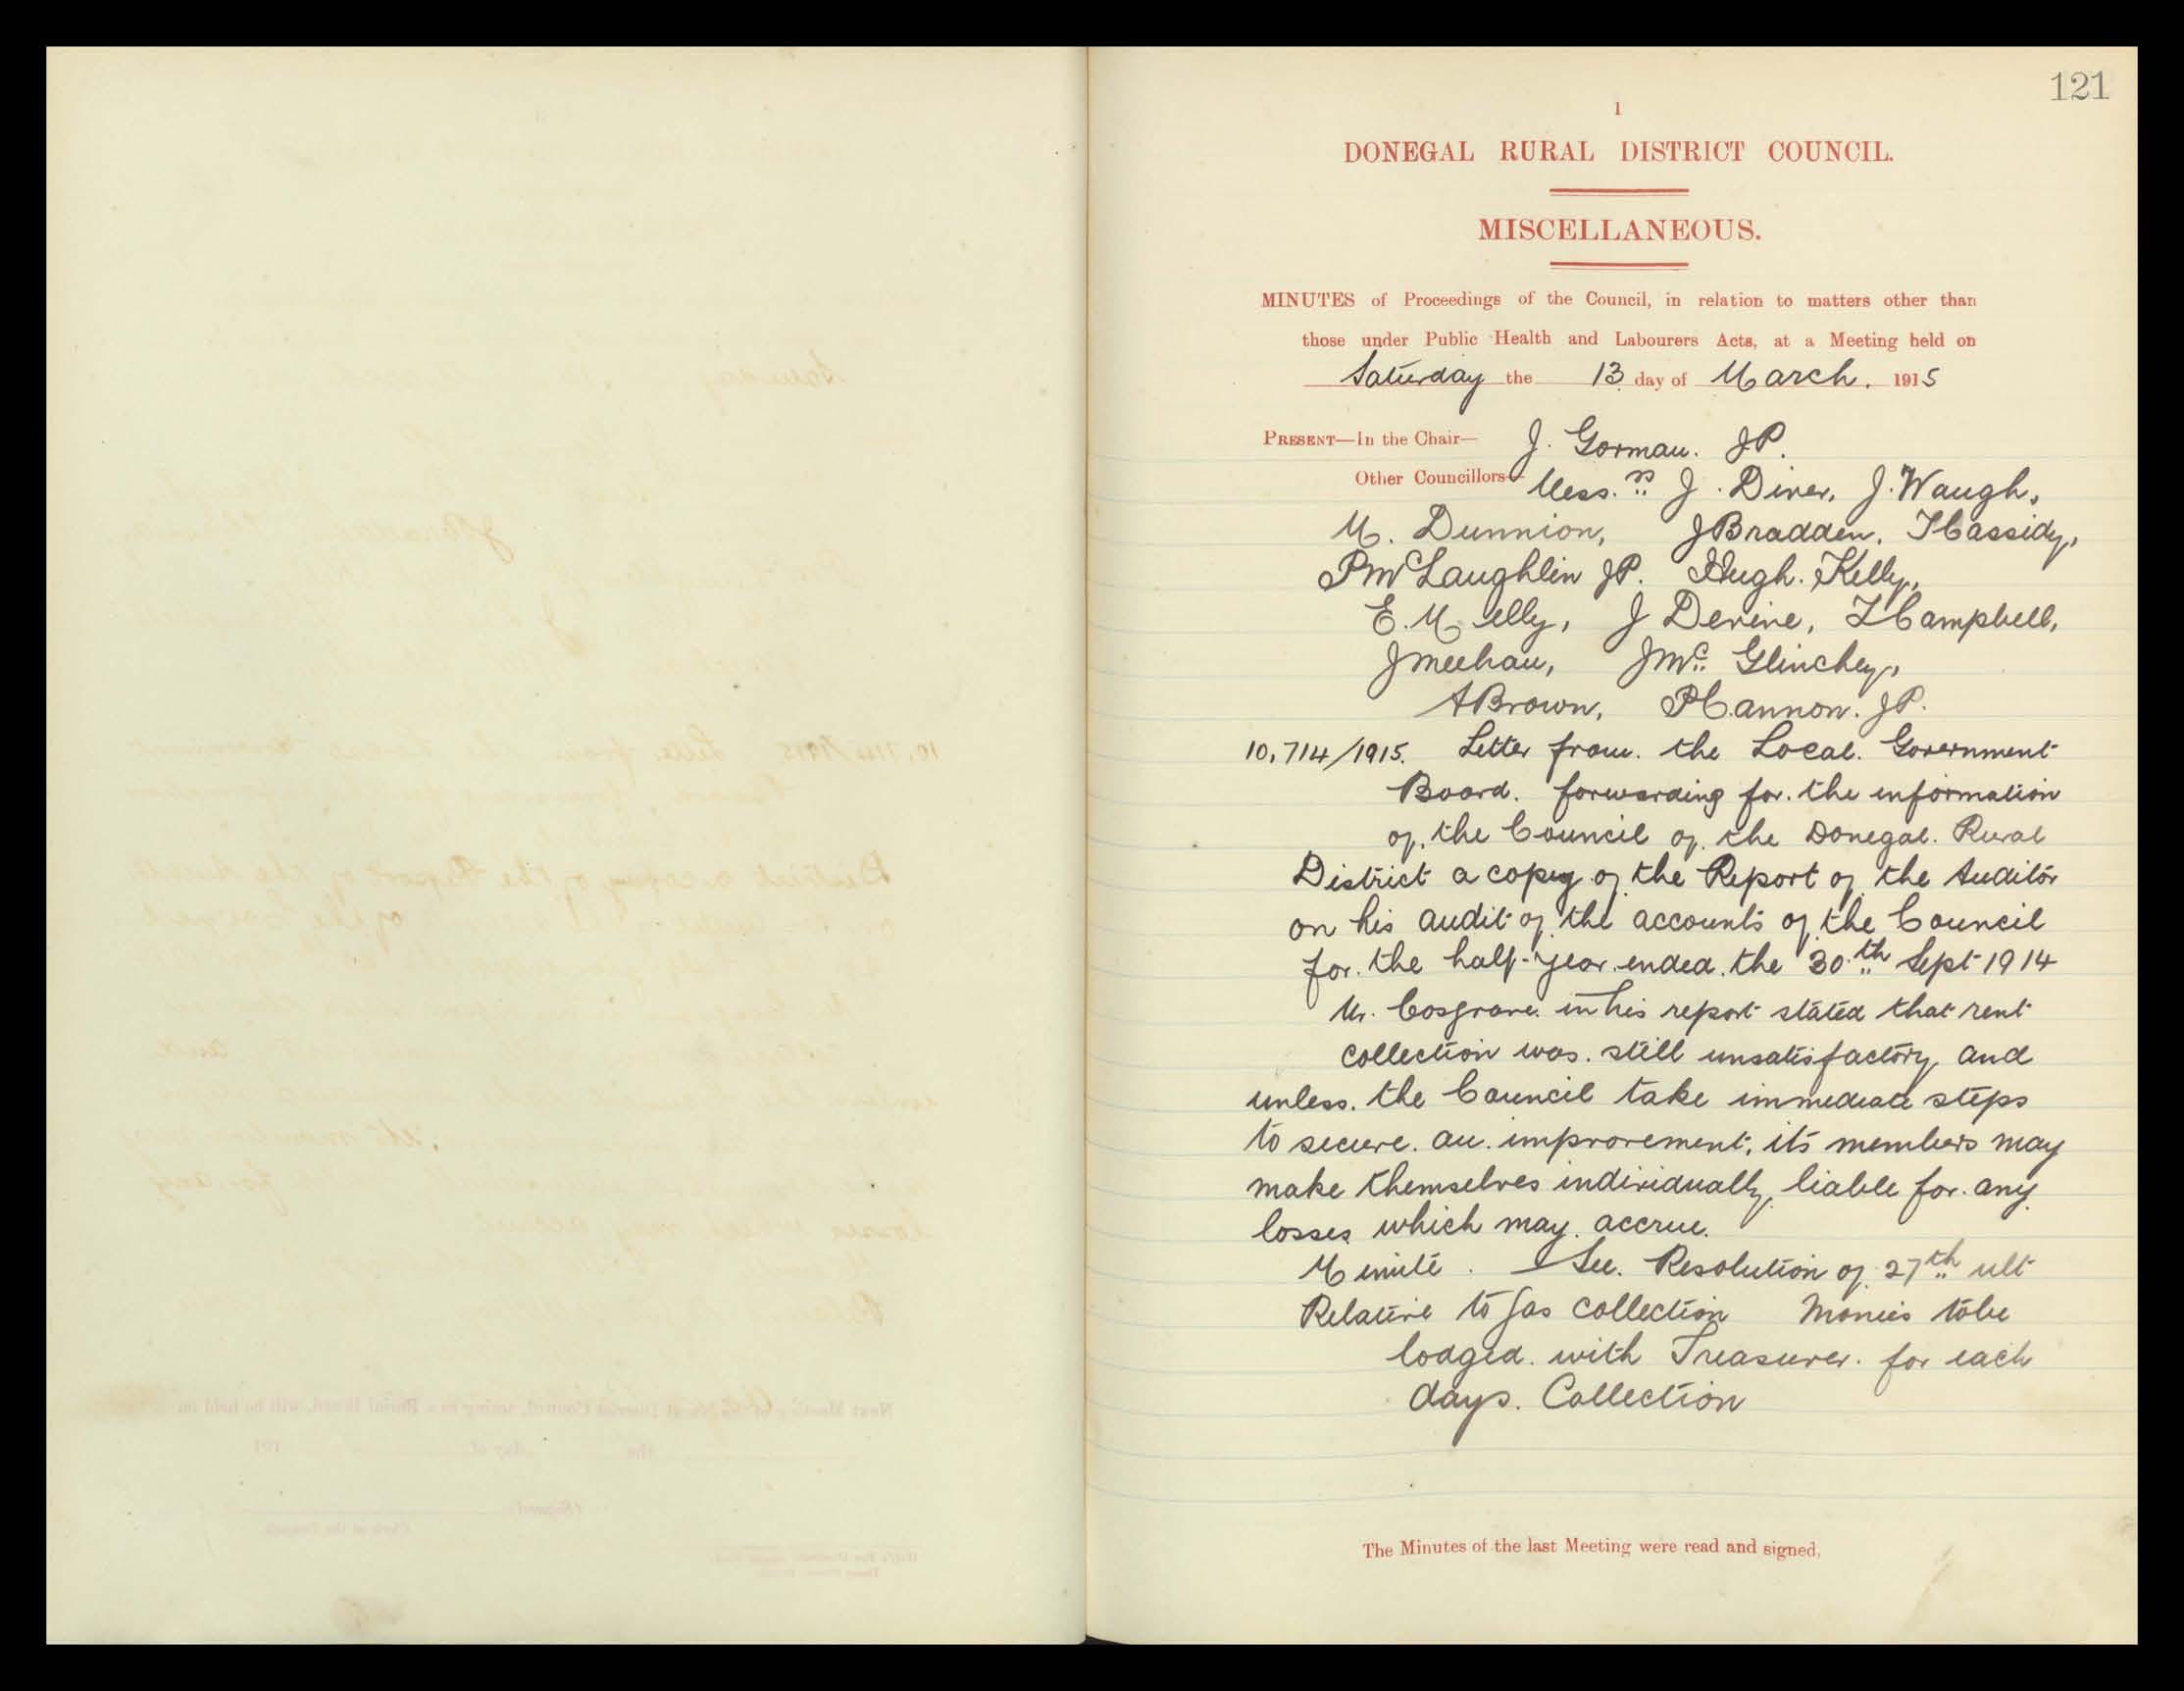 121
1
DONEGAL RURAL DISTRICT COUNCIL.
MISCELLANEOUS.
MINUTES of Proceedings of the Council, in relation to matters other than
those under Public Health and Labourers Acts, at a Meeting held on
Saturday the 13 day of March. 1915
PRESENT—In the Chair— J. Gorman. JP.
Other Councillors— Mess.rs J. Diver, J. Waugh,
M. Dunnion, J Bradden, T Cassidy,
P McLaughlin JP. Hugh. Kelly,
E. Melly, J Devine, T Campbell,
J Meehan, J Mc. Glinchey,
A Brown, P Cannon. JP.
10,714/1915. Letter from. the Local. Government
Board. forwarding for. the information
of. the Council of. the Donegal. Rural
District a copy of the Report of the Auditor
on his audit of the accounts of the Council
for. the half-year. ended. the 30.th Sept 1914
Mr. Cosgrave. in his report stated that rent
collection was. still unsatisfactory and
unless. the Council take immediate steps
to secure. an. improvement, its members may
make themselves individually liable for. any
losses which may. accrue.
Minute. See. Resolution of 27th ult
Relative to Gas collection Monies to be
lodged. with Treasurer. for each
days. Collection
The Minutes of the last Meeting were read and signed.